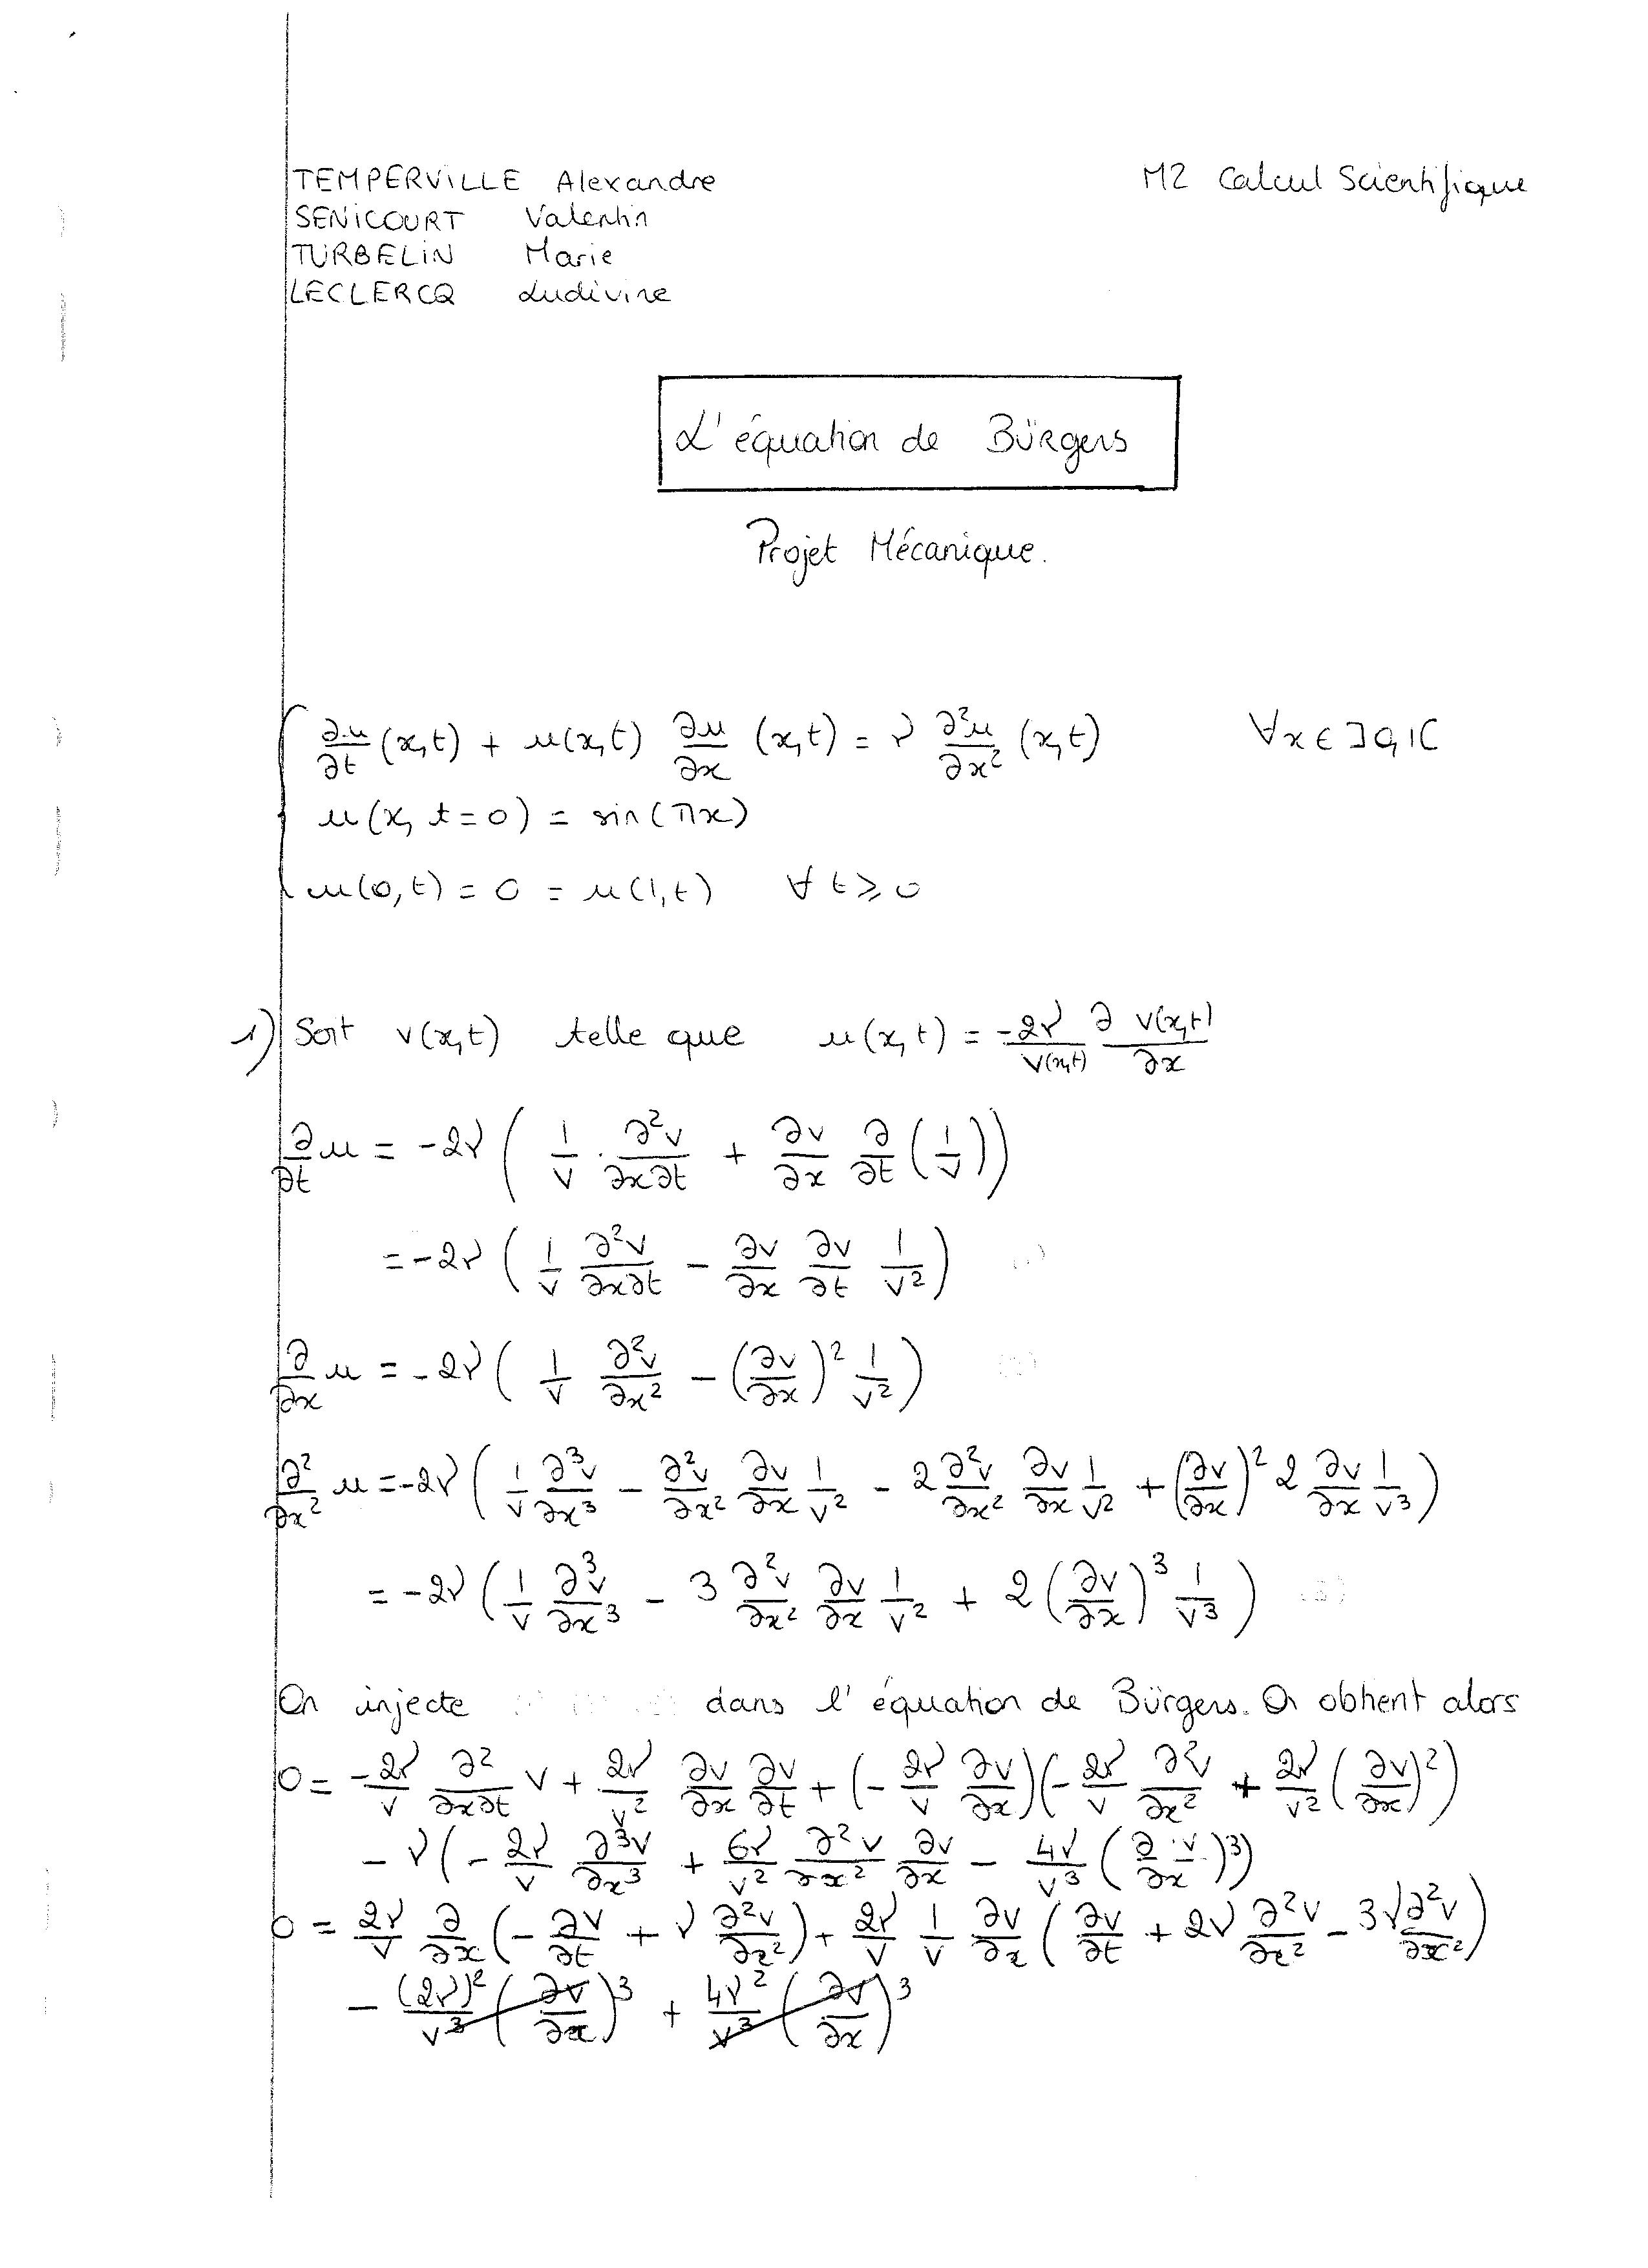 TEMPERVILLE Alexandre M2 Calcul Scientifique
SENICOURT Valentin
TURBELIN Marie
LECLERCQ Ludivine
L'équation de Bürgers
Projet Mécanique.
∂u/∂t (x,t) + u(x,t) ∂u/∂x (x,t) = ν ∂²u/∂x² (x,t) ∀x ∈ ]0,1[
u(x, t=0) = sin(πx)
u(0,t) = 0 = u(1,t) ∀ t ≥ 0
1) Soit v(x,t) telle que u(x,t) = -2ν/v(x,t) ∂v(x,t)/∂x
∂/∂t u = -2ν ( 1/v · ∂²v/∂x∂t + ∂v/∂x ∂/∂t (1/v) )
= -2ν ( 1/v ∂²v/∂x∂t - ∂v/∂x ∂v/∂t 1/v² )
∂/∂x u = -2ν ( 1/v ∂²v/∂x² - (∂v/∂x)² 1/v² )
∂²/∂x² u = -2ν ( 1/v ∂³v/∂x³ - ∂²v/∂x² ∂v/∂x 1/v² - 2 ∂²v/∂x² ∂v/∂x 1/v² + (∂v/∂x)² 2 ∂v/∂x 1/v³ )
= -2ν ( 1/v ∂³v/∂x³ - 3 ∂²v/∂x² ∂v/∂x 1/v² + 2 (∂v/∂x)³ 1/v³ )
On injecte dans l'équation de Bürgers. On obtient alors
0 = -2ν/v ∂²/∂x∂t v + 2ν/v² ∂v/∂x ∂v/∂t + (- 2ν/v ∂v/∂x) (- 2ν/v ∂²v/∂x² + 2ν/v² (∂v/∂x)²)
- ν ( - 2ν/v ∂³v/∂x³ + 6ν/v² ∂²v/∂x² ∂v/∂x - 4ν/v³ (∂v/∂x)³ )
0 = 2ν/v ∂/∂x ( - ∂v/∂t + ν ∂²v/∂x² ) + 2ν/v 1/v ∂v/∂x ( ∂v/∂t + 2ν ∂²v/∂x² - 3ν ∂²v/∂x² )
- (2ν)²/v³ (∂v/∂x)³ + 4ν²/v³ (∂v/∂x)³